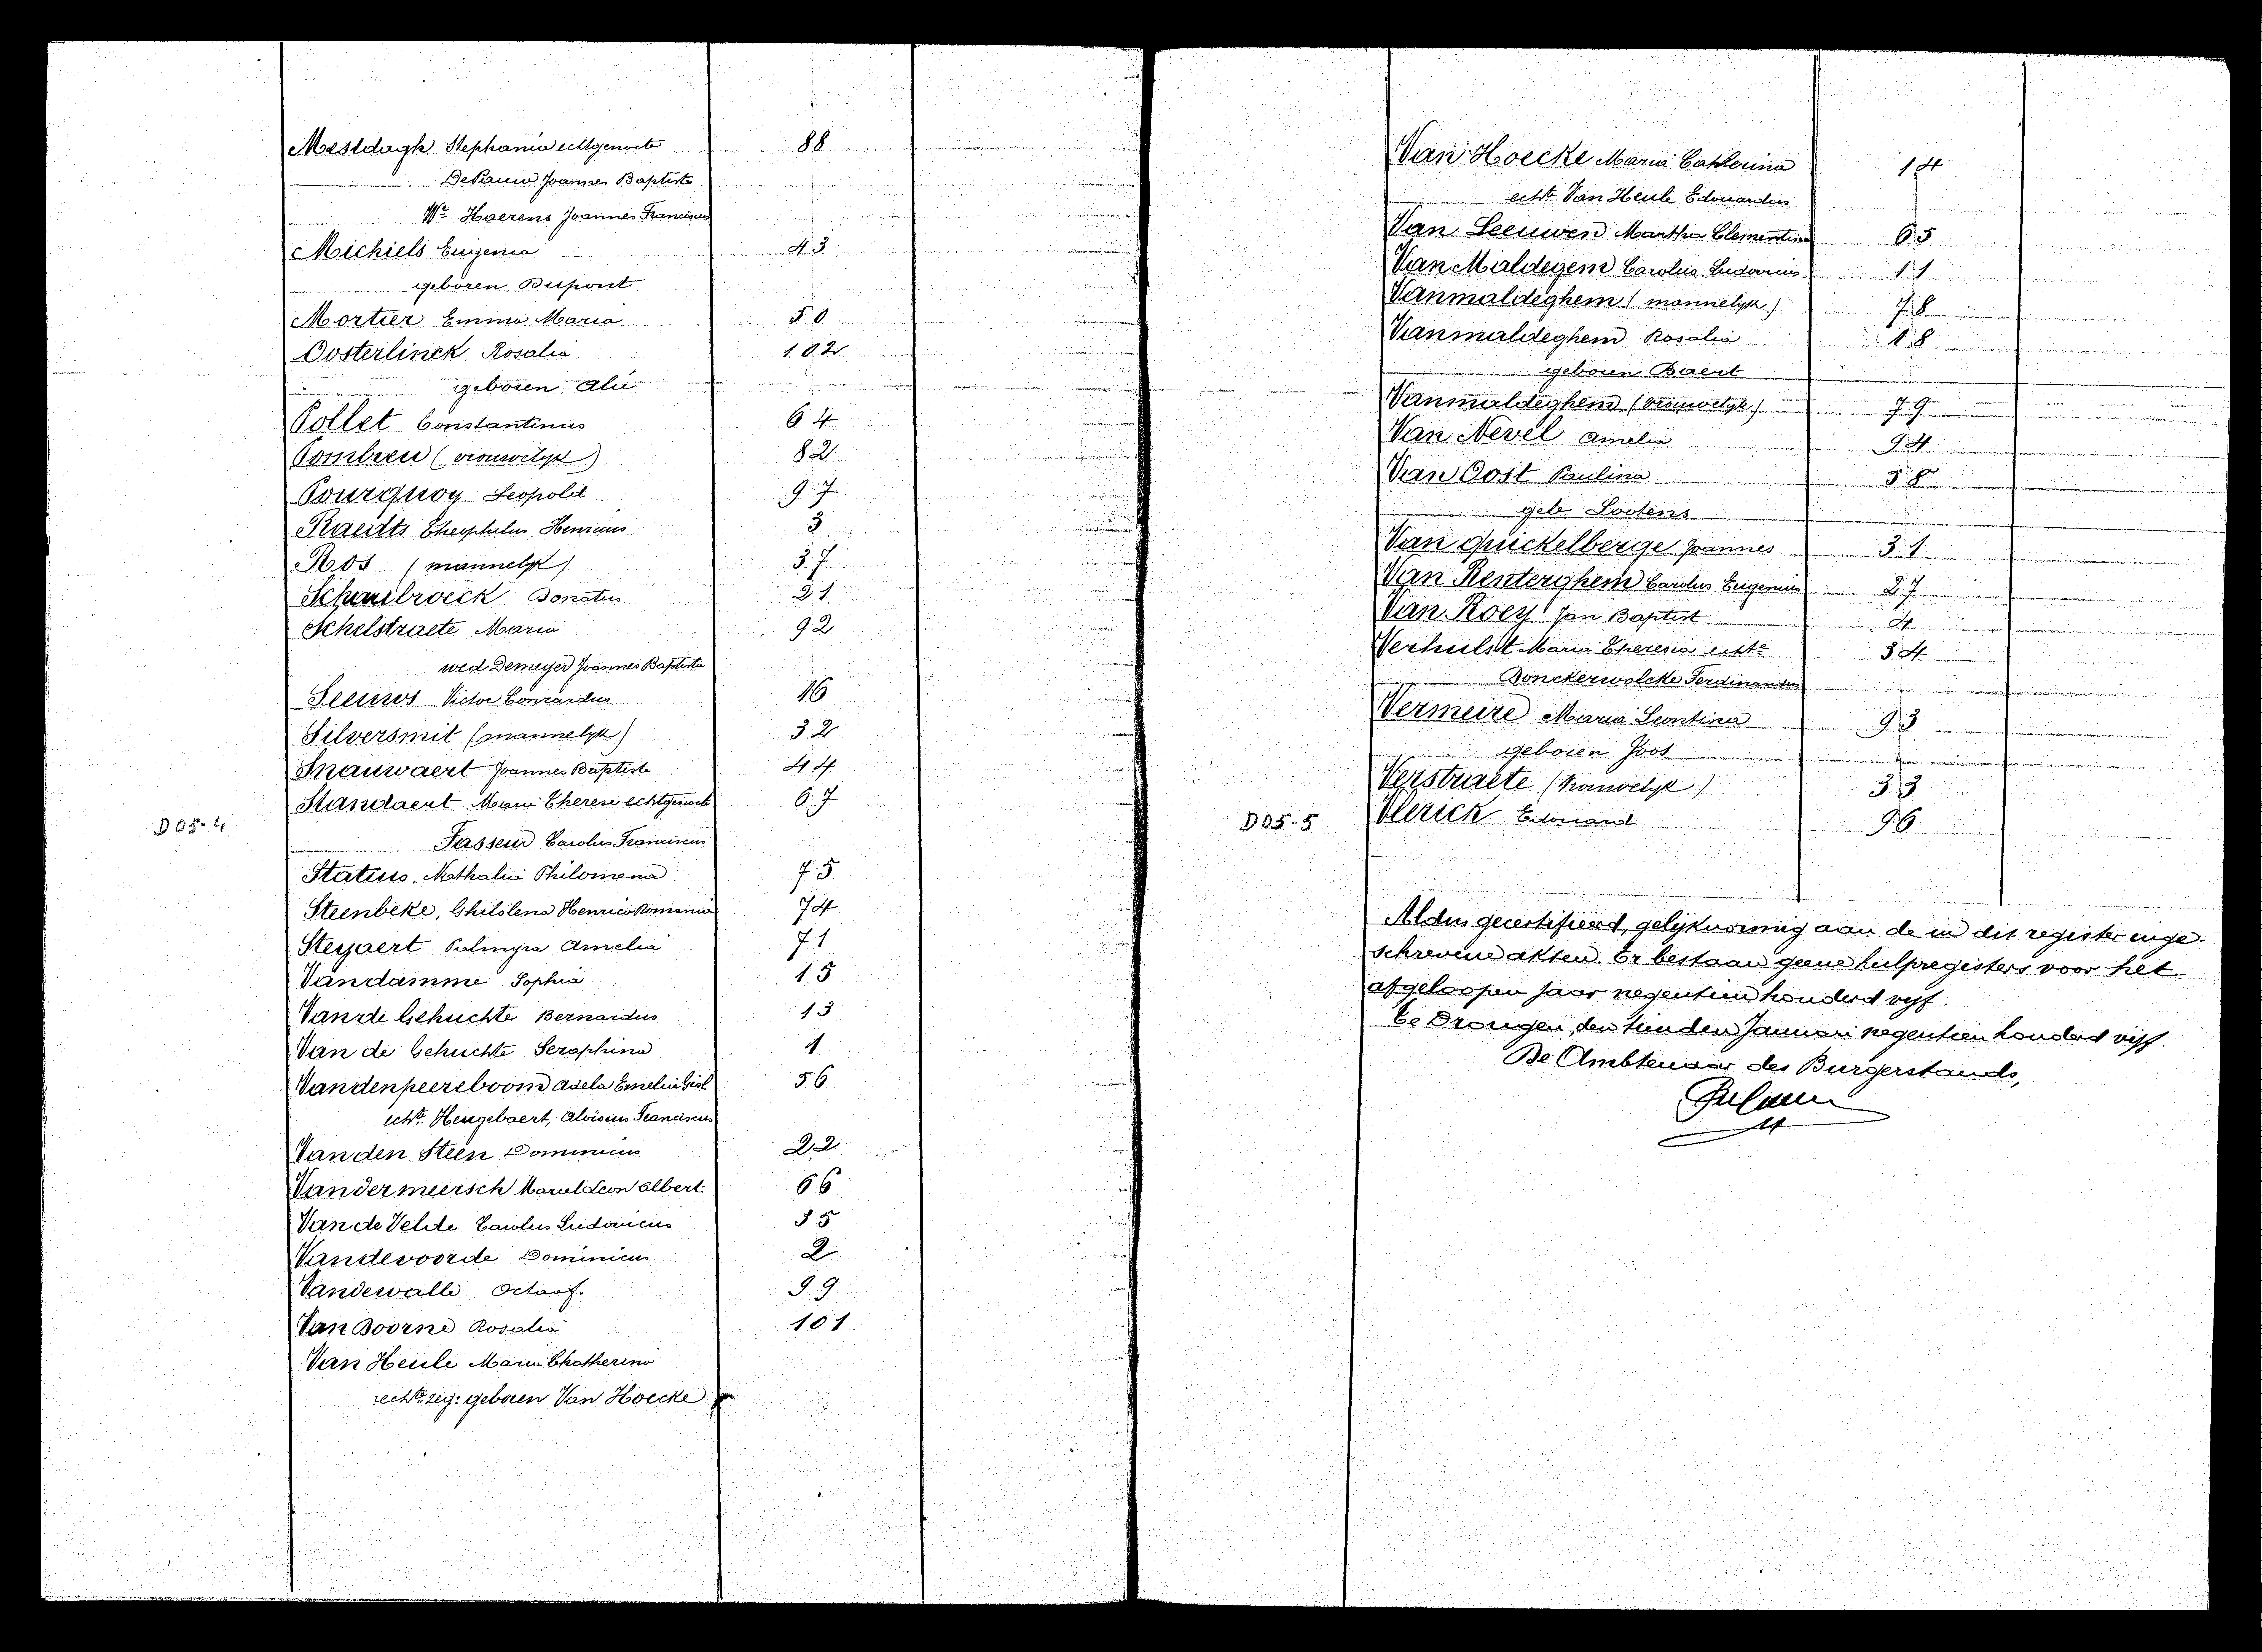 Mestdagh Stephania echtgenoote 88
De Pauw Joannes Baptiste
We Haerens Joannes Franciscus
Michiels Eugenia 43
geboren Dupont
Mortier Emma Maria 50
Oosterlinck Rosalia 102
geboren Alie
Pollet Constantinus 64
Pombreu (vrouwelijk) 82
Pourquoy Leopold 97
Raedts Theophilus Henricus 3
Ros (mannelyk) 37
Schaubroeck Donatus 21
Schelstraete Maria 92
wed Demeyer Joannes Baptista
Seeuws Victor Conrardus 16
Silversmit (mannelyk) 32
Snauwaert Joannes Baptiste 44
Standaert Marie Therese echtgenoote 67
D05-4
Fasseur Carolus Franciscus
Statius, Nathalia Philomena 75
Steenbeke, Ghislena Henrica Romania 74
Steyaert Palmyra Amelia 71
Vandamme Sophia 15
Van de Gehuchte Bernardus 13
Van de Gehuchte Seraphina 1
Vandenpeereboom Adela Emelia Gisl. 56
echte Heugebaert, Aloïsius Franciscus
Vanden Steen Dominicus 22
Vandermeersch Marcel Leon Albert 66
Van de Velde Carolus Ludovicus 35
Vandevoorde Dominicus 2
Vandewalle Octaaf. 99
Van Doorne Rosalia 101
Van Heule Maria Chatherina
echte zeg: geboren Van Hoecke
Van Hoecke Maria Catherina 14
echte Van Heule Edouardus
Van Leeuwen Martha Clementina 65
Van Maldegem Carolus Ludovicus 11
Vanmaldeghem (mannelyk) 78
Vanmaldeghem Rosalia 18
geboren Baert
Vanmaldeghem (vrouwelyk) 79
Van Nevel Amelia 94
Van Oost Paulina 58
geb Lootens
Van Quickelberge Joannes 31
Van Renterghem Carolus Eugenius 27
Van Roey Jan Baptist 4
Verhulst Maria Theresia echte 34
Donckerwolcke Ferdinandus
Vermeire Maria Leontina 93
geboren Joos
Verstraete (vrouwelyk) 33
D05-5
Vlerick Edouard 96
Aldus gecertifieerd, gelijkvormig aan de in dit register inge-
schrevene akten. Er bestaan geene hulpregisters voor het
afgeloopen jaar negentien honderd vyf.
Te Drongen, den tienden Januari negentien honderd vijf.
De Ambtenaar des Burgerstands,